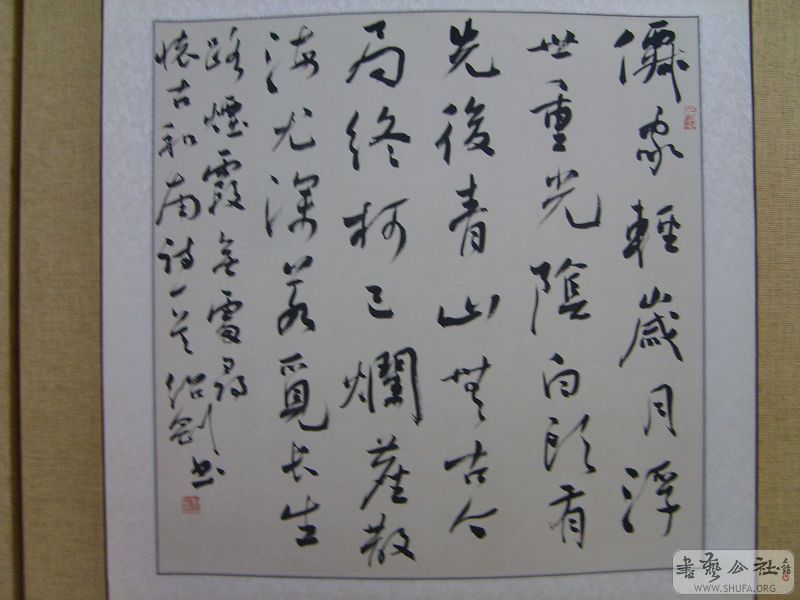 僊家輕歲月浮
世重光陰白頭有
先後青山無古今
局終柯已爛塵散
海尤深若覓長生
路煙霞無處尋
懷古和南詩一首紹劍書
書藝公社
WWW.SHUFA.ORG